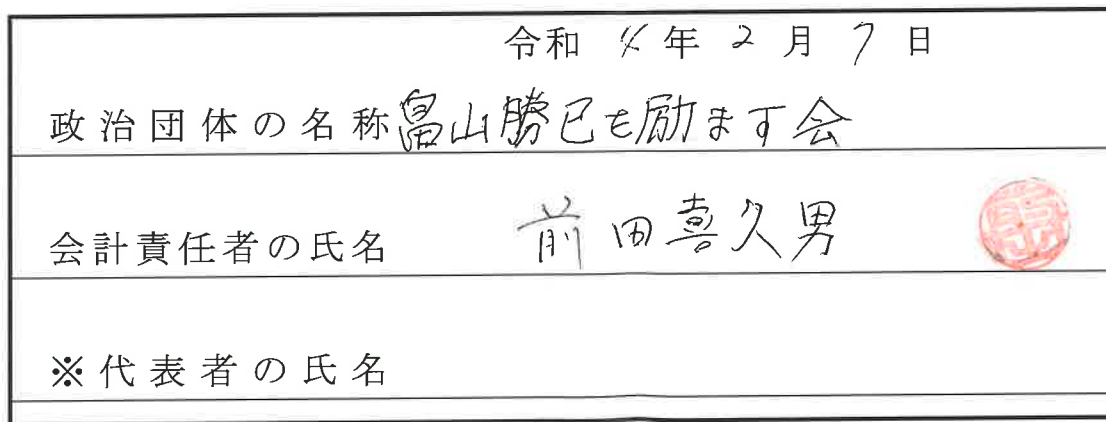 令和 4 年 2 月 7 日
政治団体の名称 畠山勝巳を励ます会
会計責任者の氏名 前田喜久男
※代表者の氏名